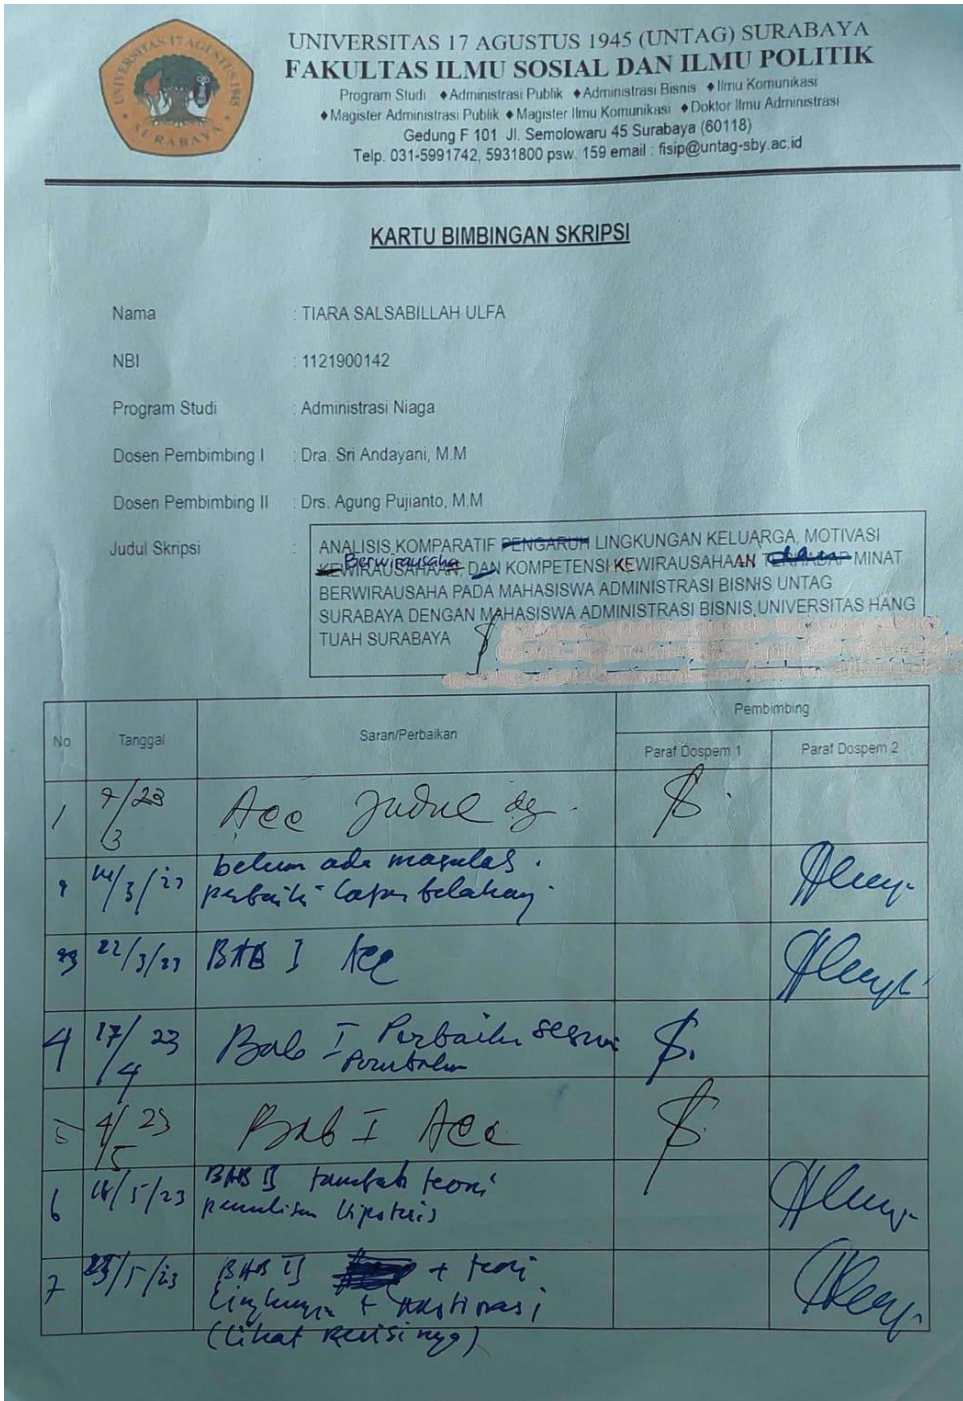 UNIVERSITAS 17 AGUSTUS 1945
SURABAYA
UNIVERSITAS 17 AGUSTUS 1945 (UNTAG) SURABAYA
FAKULTAS ILMU SOSIAL DAN ILMU POLITIK
Program Studi ♦Administrasi Publik ♦Administrasi Bisnis ♦Ilmu Komunikasi
♦Magister Administrasi Publik ♦Magister Ilmu Komunikasi ♦Doktor Ilmu Administrasi
Gedung F 101 Jl. Semolowaru 45 Surabaya (60118)
Telp. 031-5991742, 5931800 psw. 159 email : fisip@untag-sby.ac.id
KARTU BIMBINGAN SKRIPSI
Nama : TIARA SALSABILLAH ULFA
NBI : 1121900142
Program Studi : Administrasi Niaga
Dosen Pembimbing I : Dra. Sri Andayani, M.M
Dosen Pembimbing II : Drs. Agung Pujianto, M.M
Judul Skripsi :
ANALISIS KOMPARATIF PENGARUH LINGKUNGAN KELUARGA, MOTIVASI
Berwirausaha
KEWIRAUSAHAAN, DAN KOMPETENSI KEWIRAUSAHAAN TERHADAP MINAT
BERWIRAUSAHA PADA MAHASISWA ADMINISTRASI BISNIS UNTAG
SURABAYA DENGAN MAHASISWA ADMINISTRASI BISNIS UNIVERSITAS HANG
TUAH SURABAYA
No Tanggal Saran/Perbaikan Pembimbing
Paraf Dospem 1 Paraf Dospem 2
1 7/3 23 Acc Judul
14/3/23 belum ada masalah.
perbaiki latar belakang.
3 22/3/23 BAB I Acc
4 17/4 23 Bab I Perbaiki sesuai
5 4/5 23 Bab I Acc
6 /5/23 BAB II tambah teori
penulisan hipotesis
7 /5/23 BAB II + teori
lingkungan + motivasi
(lihat revisinya)